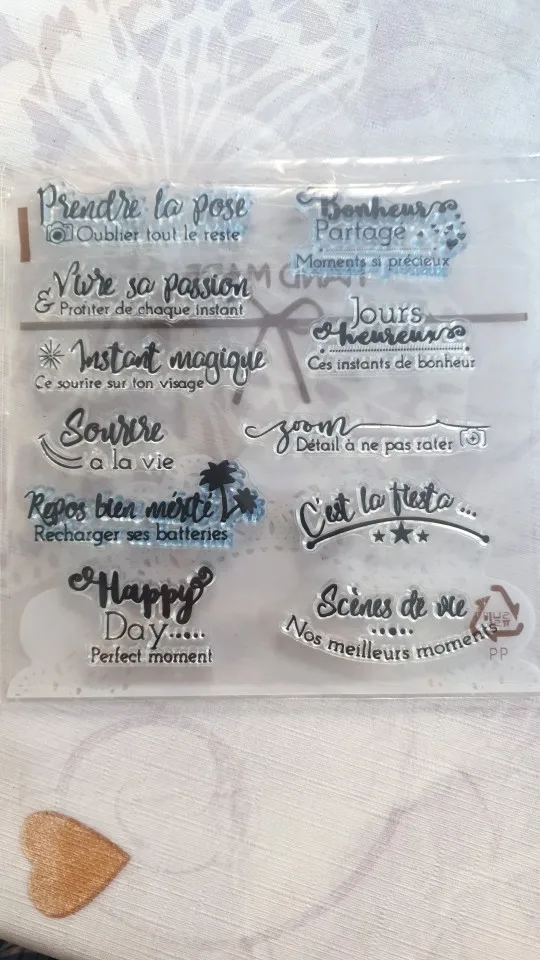 Prendre la pose
Oublier tout le reste
Vivre sa passion
& Profiter de chaque instant
Instant magique
Ce sourire sur ton visage
Sourire
à la vie
Repos bien mérité
Recharger ses batteries
Happy
Day.....
Perfect moment
Bonheur
Partagé
Moments si précieux
HAND MADE
Jours
heureux
Ces instants de bonheur
zoom
Détail à ne pas rater
C'est la fiesta ...
Scènes de vie
Nos meilleurs moments
PP